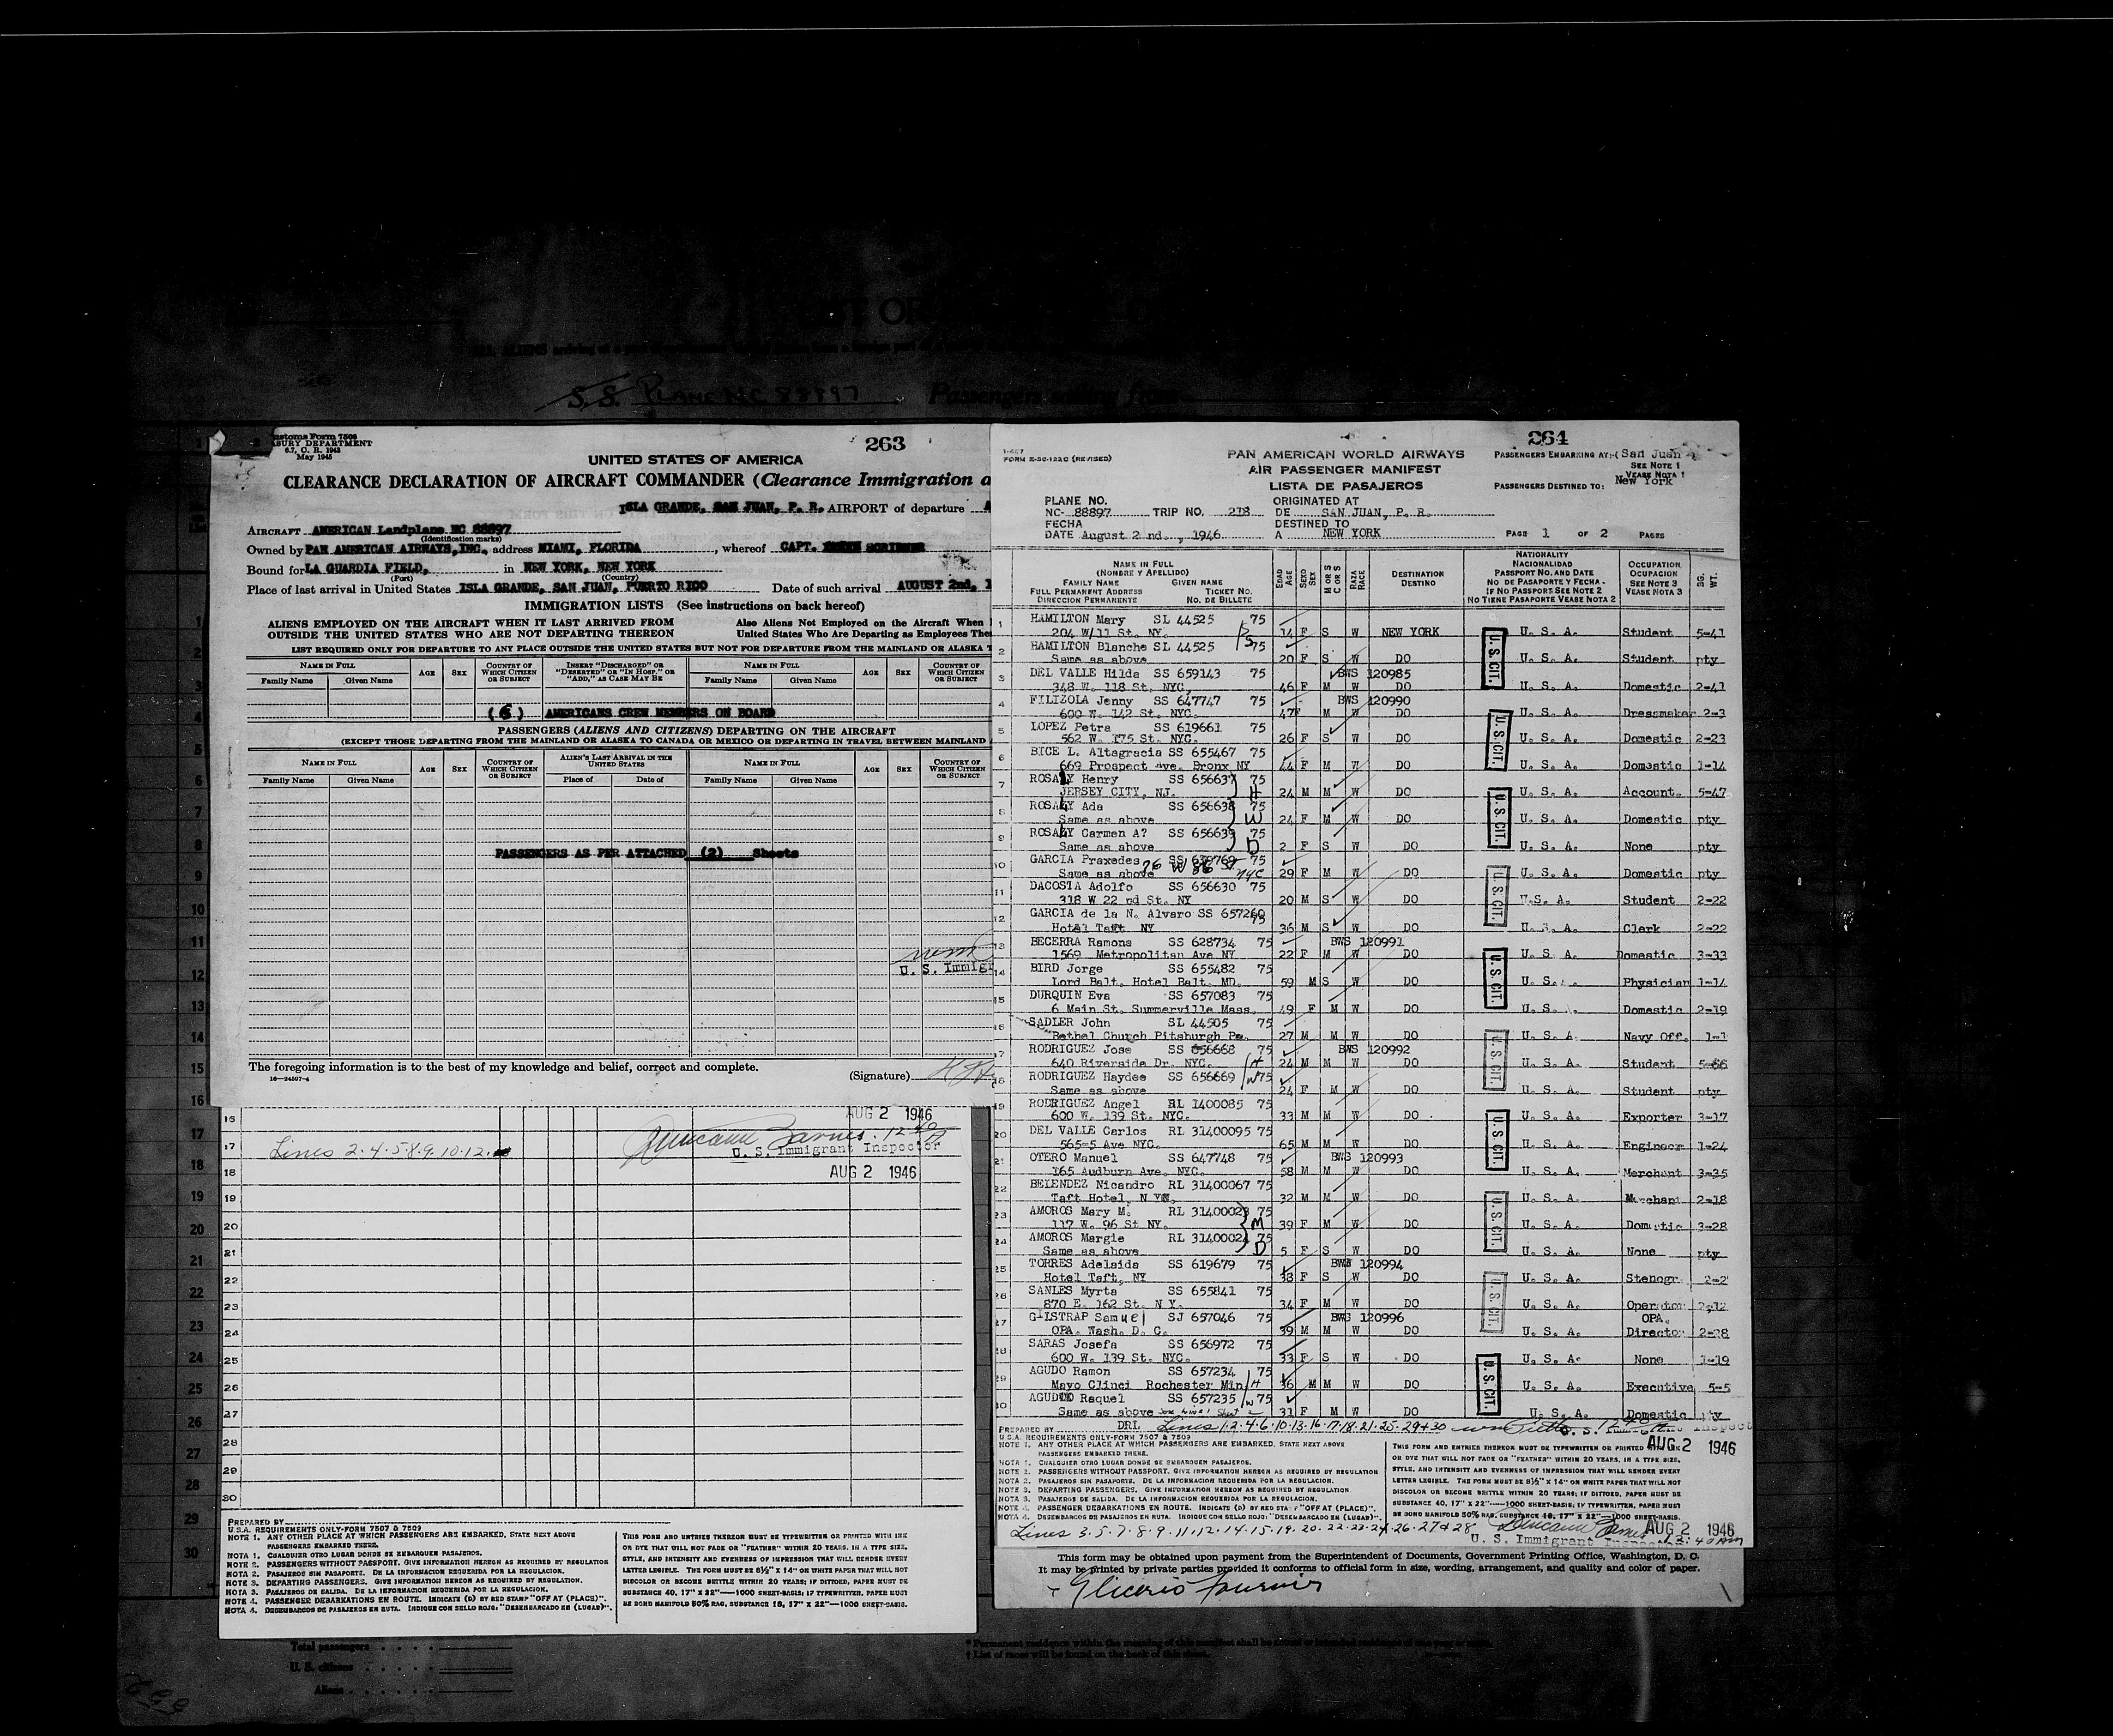 S. S. PLANE NC 88897 Passengers sailing from
Customs Form 7506
TREASURY DEPARTMENT
6.7, C. R. 1943
May 1945
263
UNITED STATES OF AMERICA
CLEARANCE DECLARATION OF AIRCRAFT COMMANDER (Clearance Immigration a
ISLA GRANDE, SAN JUAN, P. R. AIRPORT of departure A
AIRCRAFT AMERICAN Landplane NC 88897
(Identification marks)
Owned by PAN AMERICAN AIRWAYS, INC. address MIAMI, FLORIDA , whereof CAPT. SCRIBNER
Bound for LA GUARDIA FIELD, in NEW YORK, NEW YORK
(Port) (Country)
Place of last arrival in United States ISLA GRANDE, SAN JUAN, PUERTO RICO Date of such arrival AUGUST 2nd, 1
IMMIGRATION LISTS (See instructions on back hereof)
ALIENS EMPLOYED ON THE AIRCRAFT WHEN IT LAST ARRIVED FROM OUTSIDE THE UNITED STATES WHO ARE NOT DEPARTING THEREON
Also Aliens Not Employed on the Aircraft When
United States Who Are Departing as Employees The
LIST REQUIRED ONLY FOR DEPARTURE TO ANY PLACE OUTSIDE THE UNITED STATES BUT NOT FOR DEPARTURE FROM THE MAINLAND OR ALASKA T
NAME IN FULL AGE SEX COUNTRY OF WHICH CITIZEN OR SUBJECT INSERT "DISCHARGED" OR "DESERTED" OR "IN HOSP." OR "ADD," AS CASE MAY BE NAME IN FULL AGE SEX COUNTRY OF WHICH CITIZEN OR SUBJECT
Family Name Given Name Family Name Given Name
(6) AMERICANS CREW MEMBERS ON BOARD
PASSENGERS (ALIENS AND CITIZENS) DEPARTING ON THE AIRCRAFT
(EXCEPT THOSE DEPARTING FROM THE MAINLAND OR ALASKA TO CANADA OR MEXICO OR DEPARTING IN TRAVEL BETWEEN MAINLAND
NAME IN FULL AGE SEX COUNTRY OF WHICH CITIZEN OR SUBJECT ALIEN'S LAST ARRIVAL IN THE UNITED STATES NAME IN FULL AGE SEX COUNTRY OF WHICH CITIZEN OR SUBJECT
Family Name Given Name Place of Date of Family Name Given Name
PASSENGERS AS PER ATTACHED (2) Sheets
U. S. Immigr
The foregoing information is to the best of my knowledge and belief, correct and complete.
16—24597-4
(Signature)
16 AUG 2 1946
17 Lines 2·4·5·8·9·10·12· Duncan Barnes 12 40 A
U. S. Immigrant Inspector
18 AUG 2 1946
19
20
21
22
23
24
25
26
27
28
29
30
PREPARED BY
U.S.A. REQUIREMENTS ONLY-FORM 7507 & 7509
NOTE 1. ANY OTHER PLACE AT WHICH PASSENGERS ARE EMBARKED, STATE NEXT ABOVE
PASSENGERS EMBARKED THERE.
NOTA 1. CUALQUIER OTRO LUGAR DONDE SE EMBARQUEN PASAJEROS.
NOTE 2. PASSENGERS WITHOUT PASSPORT. GIVE INFORMATION HEREON AS REQUIRED BY REGULATION
NOTA 2. PASAJEROS SIN PASAPORTE. DE LA INFORMACION REQUERIDA POR LA REGULACION.
NOTE 3. DEPARTING PASSENGERS. GIVE INFORMATION HEREON AS REQUIRED BY REGULATION.
NOTA 3. PASAJEROS DE SALIDA. DE LA INFORMACION REQUERIDA POR LA REGULACION.
NOTE 4. PASSENGER DEBARKATIONS EN ROUTE. INDICATE (D) BY RED STAMP "OFF AT (PLACE)".
NOTA 4. DESEMBARCOS DE PASAJEROS EN RUTA. INDIQUE CON SELLO ROJO: "DESEMBARCADO EN (LUGAR)".
THIS FORM AND ENTRIES THEREON MUST BE TYPEWRITTEN OR PRINTED WITH INK
OR DYE THAT WILL NOT FADE OR "FEATHER" WITHIN 20 YEARS, IN A TYPE SIZE,
STYLE, AND INTENSITY AND EVENNESS OF IMPRESSION THAT WILL RENDER EVERY
LETTER LEGIBLE. THE FORM MUST BE 8½" X 14" ON WHITE PAPER THAT WILL NOT
DISCOLOR OR BECOME BRITTLE WITHIN 20 YEARS; IF DITTOED, PAPER MUST BE
SUBSTANCE 40, 17" X 22"—1000 SHEET-BASIS; IF TYPEWRITTEN, PAPER MUST
BE BOND MANIFOLD 50% RAG, SUBSTANCE 18, 17" X 22"—1000 SHEET-BASIS.
Total passengers
U. S. citizens
Aliens
264
FORM E-SC-122C (REVISED)
PAN AMERICAN WORLD AIRWAYS
AIR PASSENGER MANIFEST
LISTA DE PASAJEROS
PASSENGERS EMBARKING AT:-( San Juan
SEE NOTE 1
VEASE NOTA 1
PASSENGERS DESTINED TO: New York
PLANE NO. ORIGINATED AT
NC- 88897 TRIP NO. 218 DE SAN JUAN, P. R.
FECHA DESTINED TO
DATE August 2 nd., 1946 A NEW YORK PAGE 1 OF 2 PAGES
NAME IN FULL
(NOMBRE Y APELLIDO)
FAMILY NAME GIVEN NAME
FULL PERMANENT ADDRESS TICKET NO.
DIRECCION PERMANENTE NO. DE BILLETE
EDAD AGE SEXO SEX M OR S C OR S RAZA RACE DESTINATION DESTINO
NATIONALITY NACIONALIDAD PASSPORT NO. AND DATE NO. DE PASAPORTE Y FECHA - IF NO PASSPORT SEE NOTE 2 NO TIENE PASAPORTE VEASE NOTA 2
OCCUPATION OCUPACION SEE NOTE 3 VEASE NOTA 3 BG. WT.
1 HAMILTON Mary SL 44525 75
204 W/11 St. NY. 14 F S W NEW YORK U. S. A. Student 5-41
2 HAMILTON Blanche SL 44525 75
Same as above 20 F S W DO U. S. A. Student pty
3 DEL VALLE Hilda SS 659143 75 BWS 120985
348 W. 118 St. NYC. 46 F M W DO U. S. A. Domestic 2-41
4 FILIZOLA Jenny SS 647747 75 BWS 120990
600 W. 142 St. NYC. 47 F M W DO U. S. A. Dressmaker 2-3
5 LOPEZ Petra SS 619661 75
562 W. 175 St. NYC. 26 F S W DO U. S. A. Domestic 2-23
6 BICE L. Altagracia SS 655467 75
669 Prospect Ave. Bronx NY 44 F M W DO U. S. A. Domestic 1-14
7 ROSALY Henry SS 656637 75
JERSEY CITY, NJ. H 24 M M W DO U. S. A. Account. 5-47
8 ROSALY Ada SS 656638 75
Same as above W 24 F M W DO U. S. A. Domestic pty
9 ROSALY Carmen A? SS 656639 75
Same as above D 2 F S W DO U. S. A. None pty
10 GARCIA Praxedes SS 639769 75
Same as above 26 W 86 St NYC 29 F M W DO U. S. A. Domestic pty
11 DACOSTA Adolfo SS 656630 75
318 W 22 nd St. NY 20 M S W DO U.S. A. Student 2-22
12 GARCIA de la N. Alvaro SS 657260 75
Hotel Taft. NY 36 M S W DO U. S. A. Clerk 2-22
13 BECERRA Ramona SS 628734 75 BWS 120991
1569 Metropolitan Ave NY 22 F M W DO U. S A. Domestic 3-33
14 BIRD Jorge SS 655482 75
Lord Balt. Hotel Balt. MD. 59 M S W DO U. S. A. Physician 1-14
15 DURQUIN Eva SS 657083 75
6 Main St. Summerville Mass. 49 F M W DO U. S. A. Domestic 2-19
16 SADLER John SL 44505 75
Bethel Church Pitsburgh Pa. 27 M M W DO U. S. A. Navy Off. 1-1
17 RODRIGUEZ Jose SS 656668 75 BWS 120992
640 Riverside Dr. NYC. H 24 M M W DO U. S. A. Student 5-66
18 RODRIGUEZ Haydee SS 656669 W 75
Same as above 24 F M W DO U. S. A. Student pty
19 RODRIGUEZ Angel RL 1400085 75
600 W. 139 St. NYC. 33 M M W DO U. S. A. Exporter 3-17
20 DEL VALLE Carlos RL 31400095 75
565-5 Ave NYC. 65 M M W DO U. S. A. Engineer 1-24
21 OTERO Manuel SS 647748 75 BWS 120993
165 Audburn Ave. NYC. 58 M M W DO U. S. A. Merchant 3-35
22 BELENDEZ Nicandro RL 31400067 75
Taft Hotel, N YC. 32 M M W DO U. S. A. Merchant 2-18
23 AMOROS Mary M. RL 31400023 75
117 W. 96 St NY. M 39 F M W DO U. S. A. Domestic 3-28
24 AMOROS Margie RL 31400024 75
Same as above D 5 F S W DO U. S. A. None pty
25 TORRES Adelaida SS 619679 75 BWS 120994
Hotel Taft, NY 38 F S W DO U. S. A. Stenogr. 2-2
26 SANLES Myrta SS 655841 75
870 E. 162 St. N Y. 34 F M W DO U. S. A. Operator 2-12
27 GILSTRAP Samuel SJ 657046 75 BWS 120996 OPA.
OPA. Wash. D. C. 39 M M W DO U. S. A. Director 2-28
28 SARAS Josefa SS 656972 75
600 W. 139 St. NYC. 33 F S W DO U. S. A. None 1-19
29 AGUDO Ramon SS 657234 75
Mayo Clinci Rochester Min H 36 M M W DO U. S. A. Executive 5-5
30 AGUDO Raquel SS 657235 W 75
Same as above 31 F M W DO U. S. A. Domestic pty
U.S. CIT.
U.S. CIT.
U.S. CIT.
U.S. CIT.
U.S. CIT.
U.S. CIT.
U.S. CIT.
U.S. CIT.
U.S. CIT.
U.S. CIT.
PREPARED BY DRL Lines 1·2·4·6·10·13·16·17·18·21·25·29+30
AUG 2 1946
U.S.A. REQUIREMENTS ONLY-FORM 7507 & 7509
NOTE 1. ANY OTHER PLACE AT WHICH PASSENGERS ARE EMBARKED, STATE NEXT ABOVE
PASSENGERS EMBARKED THERE.
NOTA 1. CUALQUIER OTRO LUGAR DONDE SE EMBARQUEN PASAJEROS.
NOTE 2. PASSENGERS WITHOUT PASSPORT. GIVE INFORMATION HEREON AS REQUIRED BY REGULATION
NOTA 2. PASAJEROS SIN PASAPORTE. DE LA INFORMACION REQUERIDA POR LA REGULACION.
NOTE 3. DEPARTING PASSENGERS. GIVE INFORMATION HEREON AS REQUIRED BY REGULATION
NOTA 3. PASAJEROS DE SALIDA. DE LA INFORMACION REQUERIDA POR LA REGULACION.
NOTE 4. PASSENGER DEBARKATIONS EN ROUTE. INDICATE (D) BY RED STAMP "OFF AT (PLACE)".
NOTA 4. DESEMBARCOS DE PASAJEROS EN RUTA. INDIQUE CON SELLO ROJO: "DESEMBARCADO EN (LUGAR)".
THIS FORM AND ENTRIES THEREON MUST BE TYPEWRITTEN OR PRINTED WITH INK
OR DYE THAT WILL NOT FADE OR "FEATHER" WITHIN 20 YEARS, IN A TYPE SIZE,
STYLE, AND INTENSITY AND EVENNESS OF IMPRESSION THAT WILL RENDER EVERY
LETTER LEGIBLE. THE FORM MUST BE 8½" X 14" ON WHITE PAPER THAT WILL NOT
DISCOLOR OR BECOME BRITTLE WITHIN 20 YEARS; IF DITTOED, PAPER MUST BE
SUBSTANCE 40, 17" X 22"—1000 SHEET-BASIS; IF TYPEWRITTEN, PAPER MUST
BE BOND MANIFOLD 50% RAG, SUBSTANCE 18, 17" X 22"—1000 SHEET-BASIS.
Lines 3·5·7·8·9·11·12·14·15·19·20·22·23·24·26·27+28 Duncan Barnes AUG 2 1946
U. S. Immigrant Inspector 12:40 AM
This form may be obtained upon payment from the Superintendent of Documents, Government Printing Office, Washington, D. C.
It may be printed by private parties provided it conforms to official form in size, wording, arrangement, and quality and color of paper.
Glicerio Fournier
* Permanent residence within the meaning of this manifest shall be actual or intended residence of one year or more.
† List of races will be found on the back of this sheet.